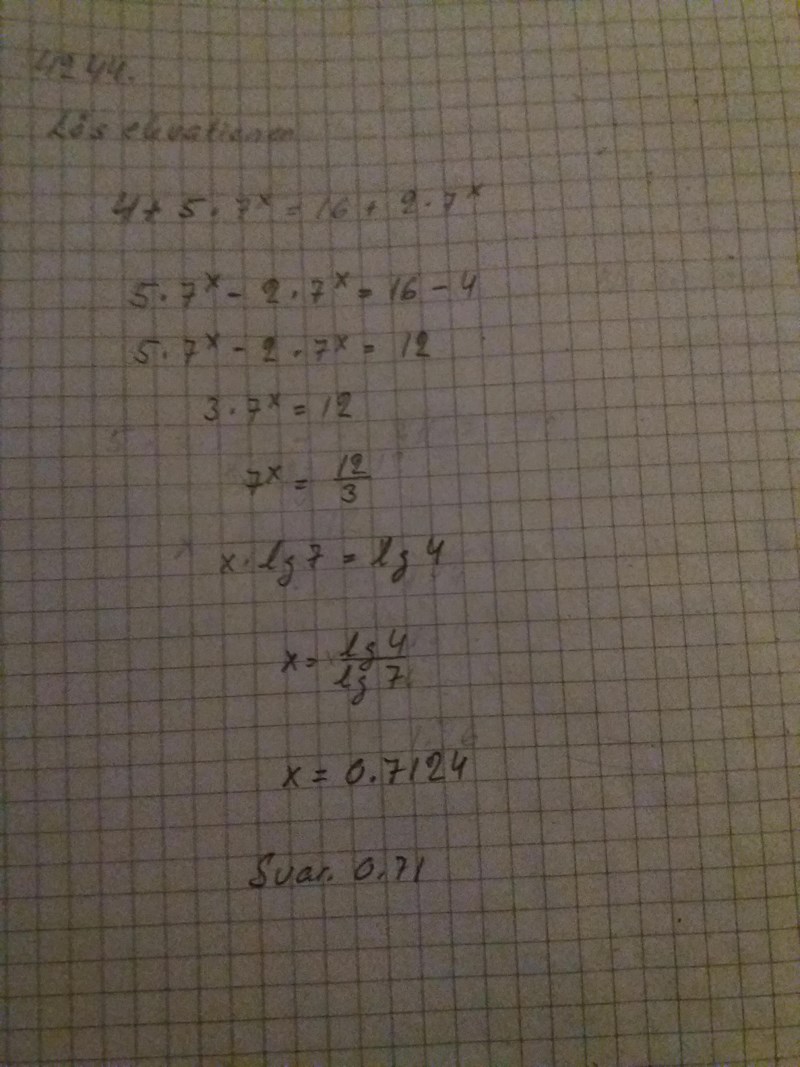 4244.
Lös ekvationen
4 + 5 · 7^x = 16 + 2 · 7^x
5 · 7^x - 2 · 7^x = 16 - 4
5 · 7^x - 2 · 7^x = 12
3 · 7^x = 12
7^x = 12/3
x · lg 7 = lg 4
x = lg 4 / lg 7
x = 0.7124
Svar. 0.71